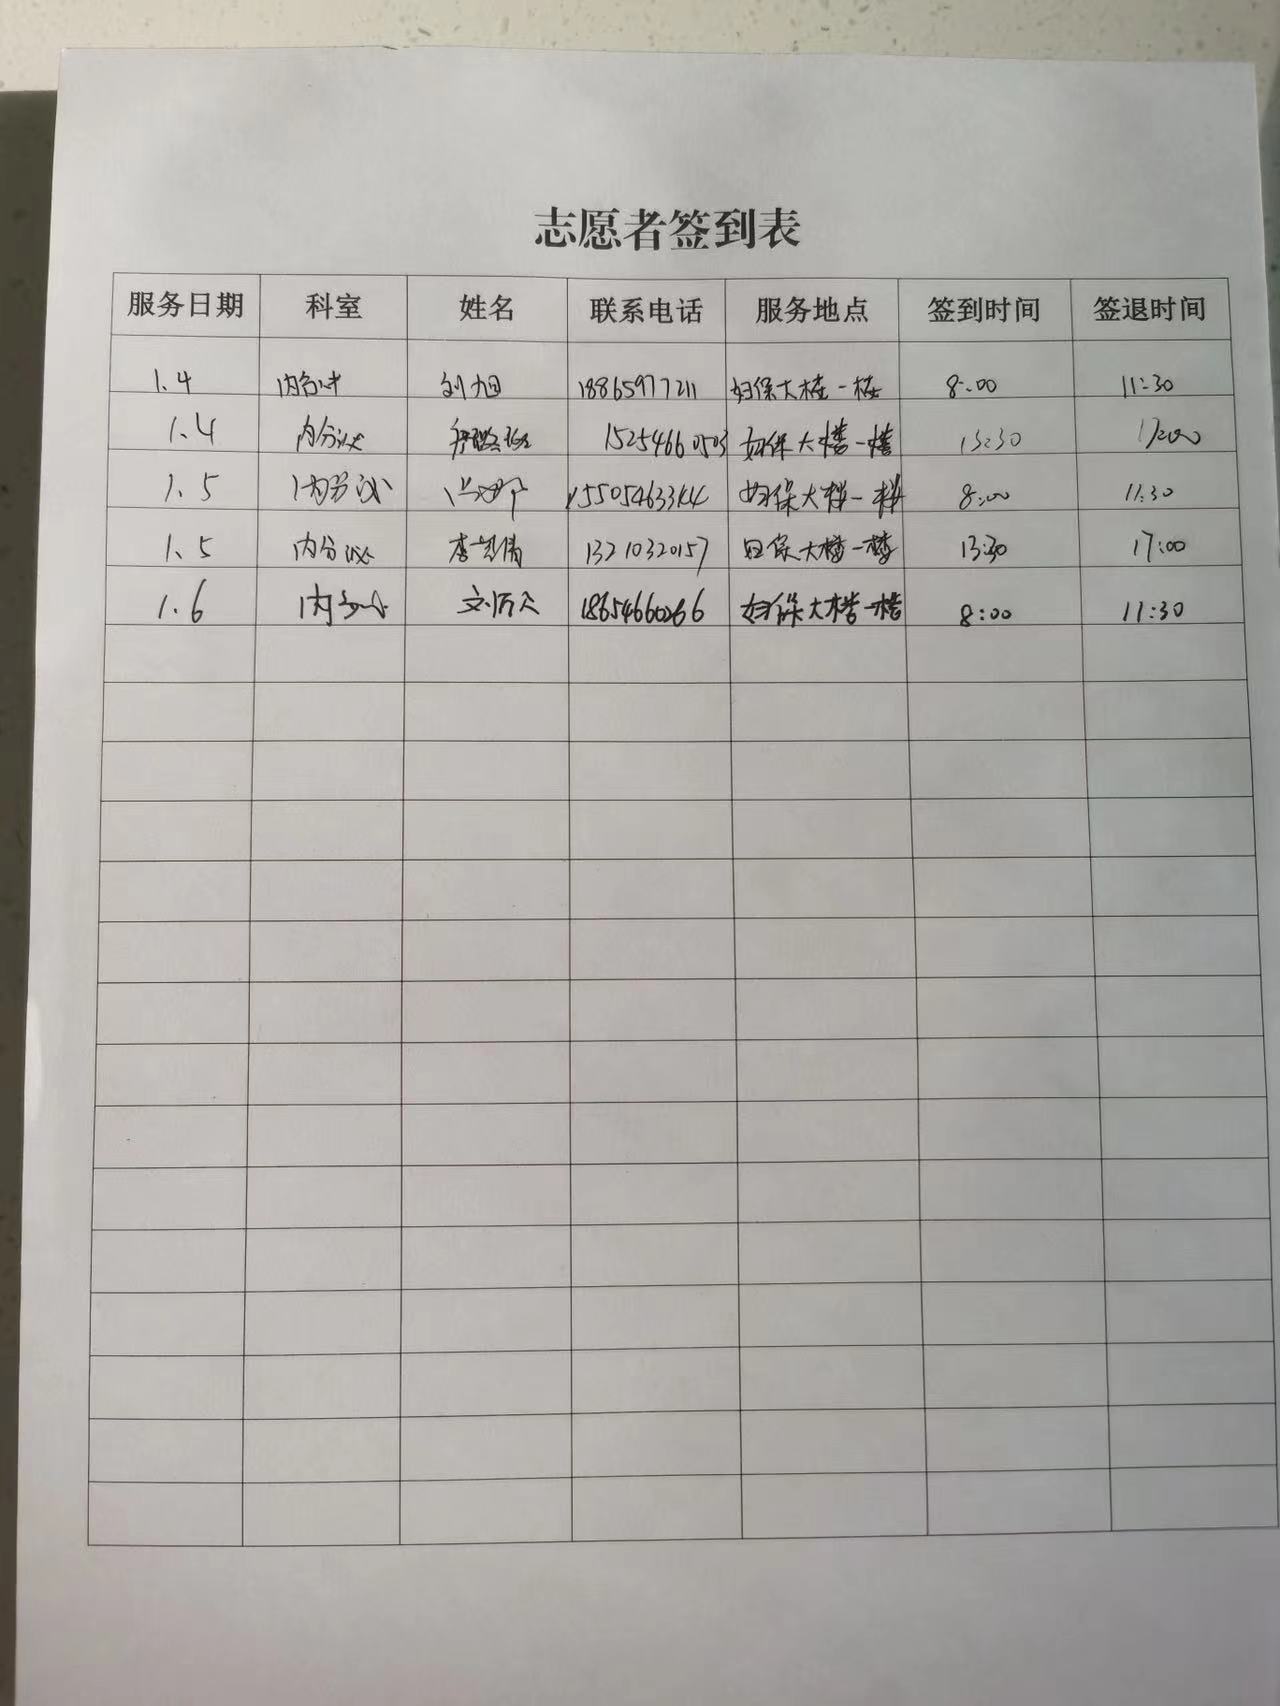 志愿者签到表
服务日期 科室 姓名 联系电话 服务地点 签到时间 签退时间
1.4 内分泌 刘旭 18865977211 妇保大楼一楼 8:00 11:30
1.4 内分泌 15254660503 妇保大楼一楼 13:30 17:00
1.5 内分泌 妇保大楼一楼 8:00 11:30
1.5 内分泌 13210320157 妇保大楼一楼 13:30 17:00
1.6 内分泌 18654660266 妇保大楼一楼 8:00 11:30